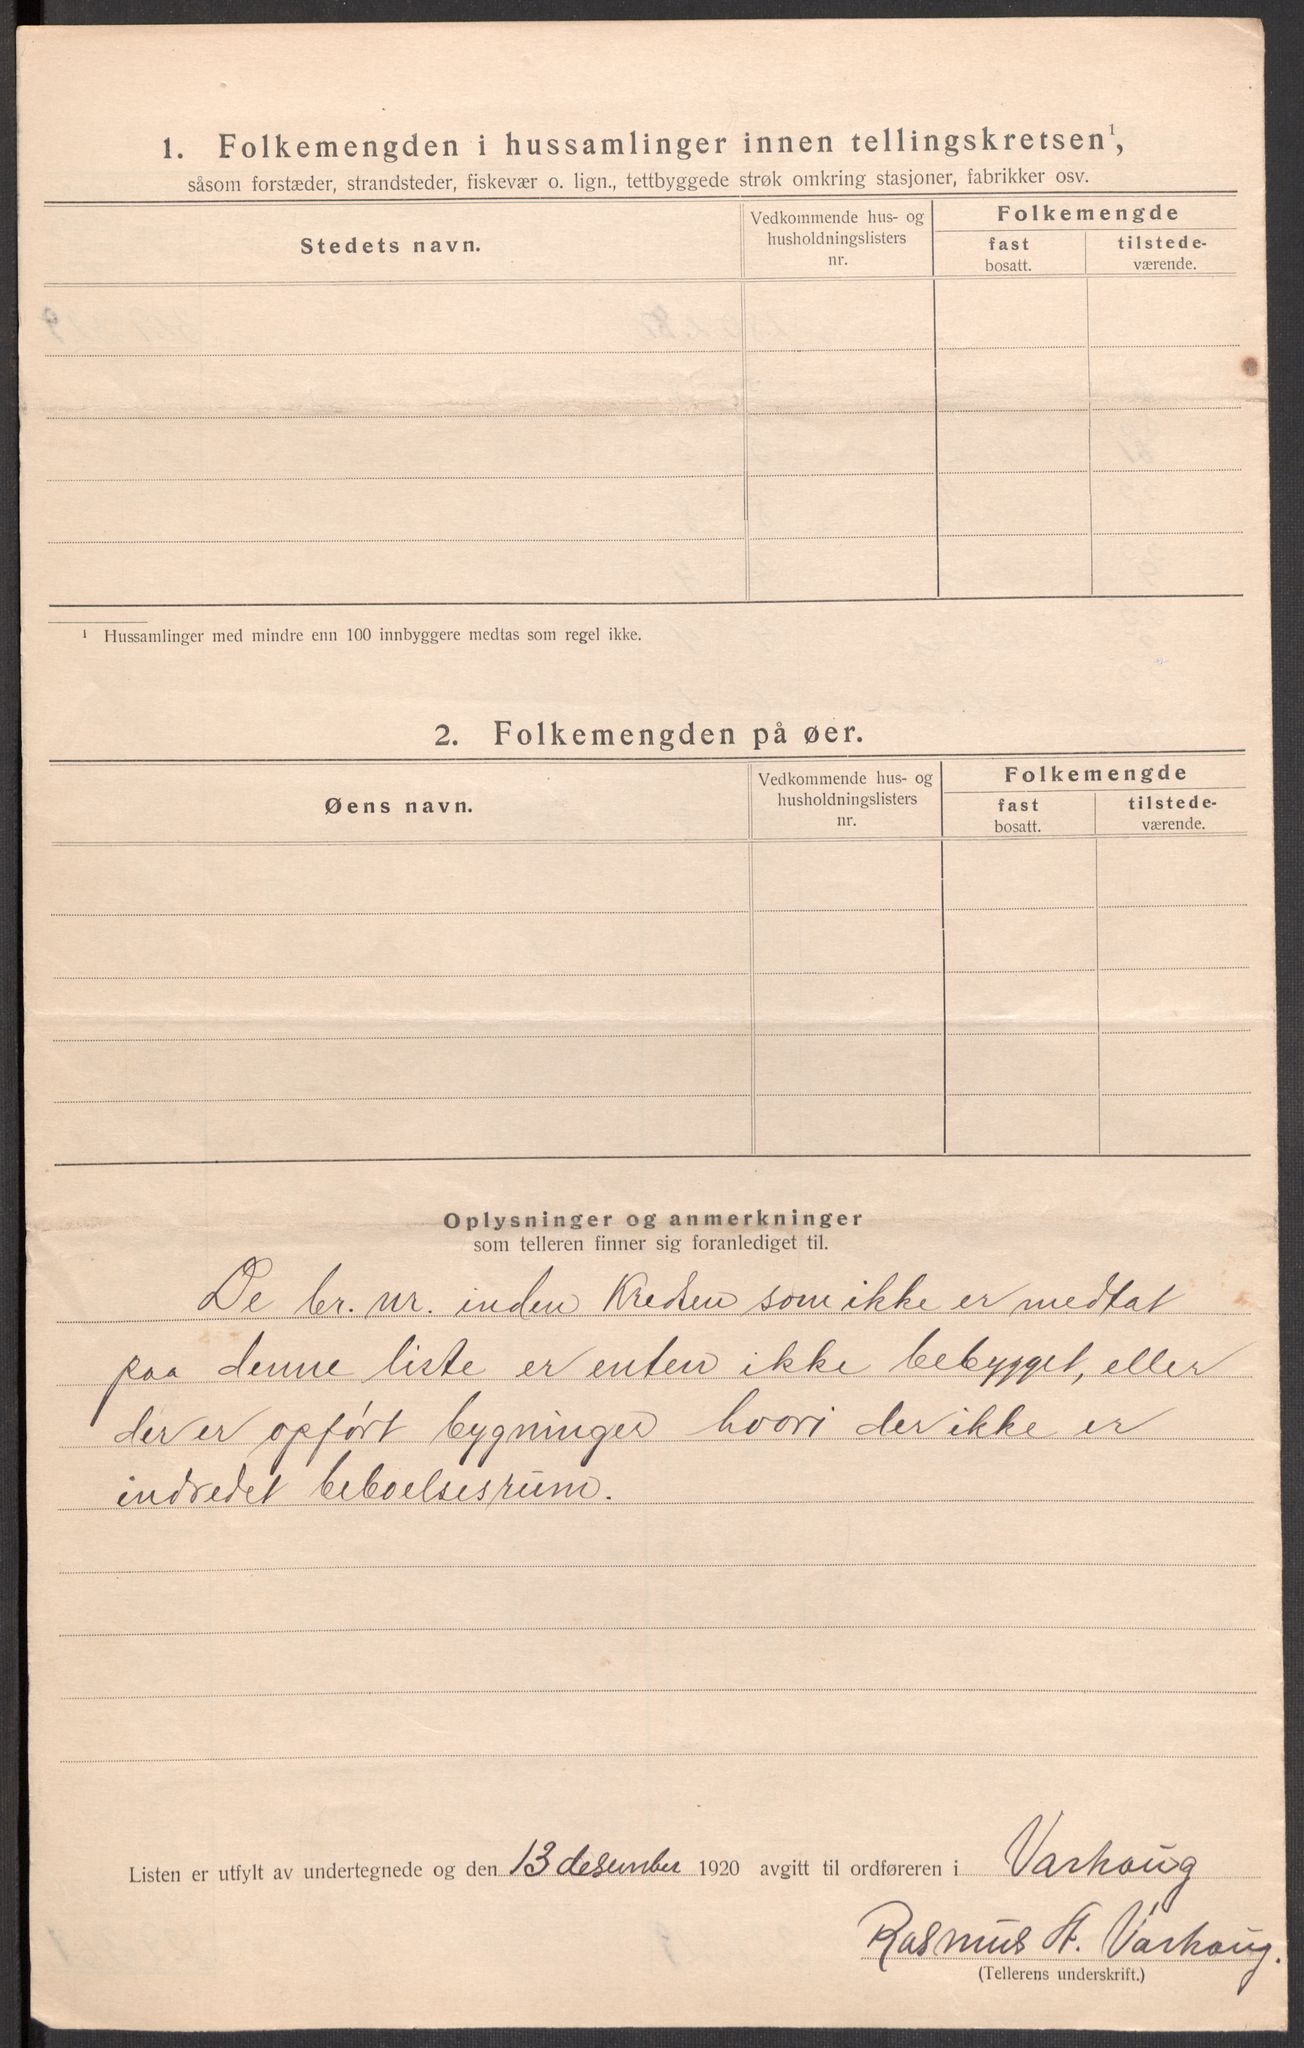 1. Folkemengden i hussamlinger innen tellingskretsen¹,
såsom forstæder, strandsteder, fiskevær o. lign., tettbyggede strøk omkring stasjoner, fabrikker osv.
Stedets navn.
Vedkommende hus- og
husholdningslisters
nr.
Folkemengde
fast
bosatt.
tilstede-
værende.
¹ Hussamlinger med mindre enn 100 innbyggere medtas som regel ikke.
2. Folkemengden på øer.
Øens navn.
Vedkommende hus- og
husholdningslisters
nr.
Folkemengde
fast
bosatt.
tilstede-
værende.
Oplysninger og anmerkninger
som telleren finner sig foranlediget til.
De br. nr. inden Kredsen som ikke er medtat
paa denne liste er enten ikke bebygget, eller
der er opført bygninger hvori der ikke er
indredet beboelsesrum.
Listen er utfylt av undertegnede og den 13 desember 1920 avgitt til ordføreren i Varhaug
Rasmus A. Varhaug.
(Tellerens underskrift.)